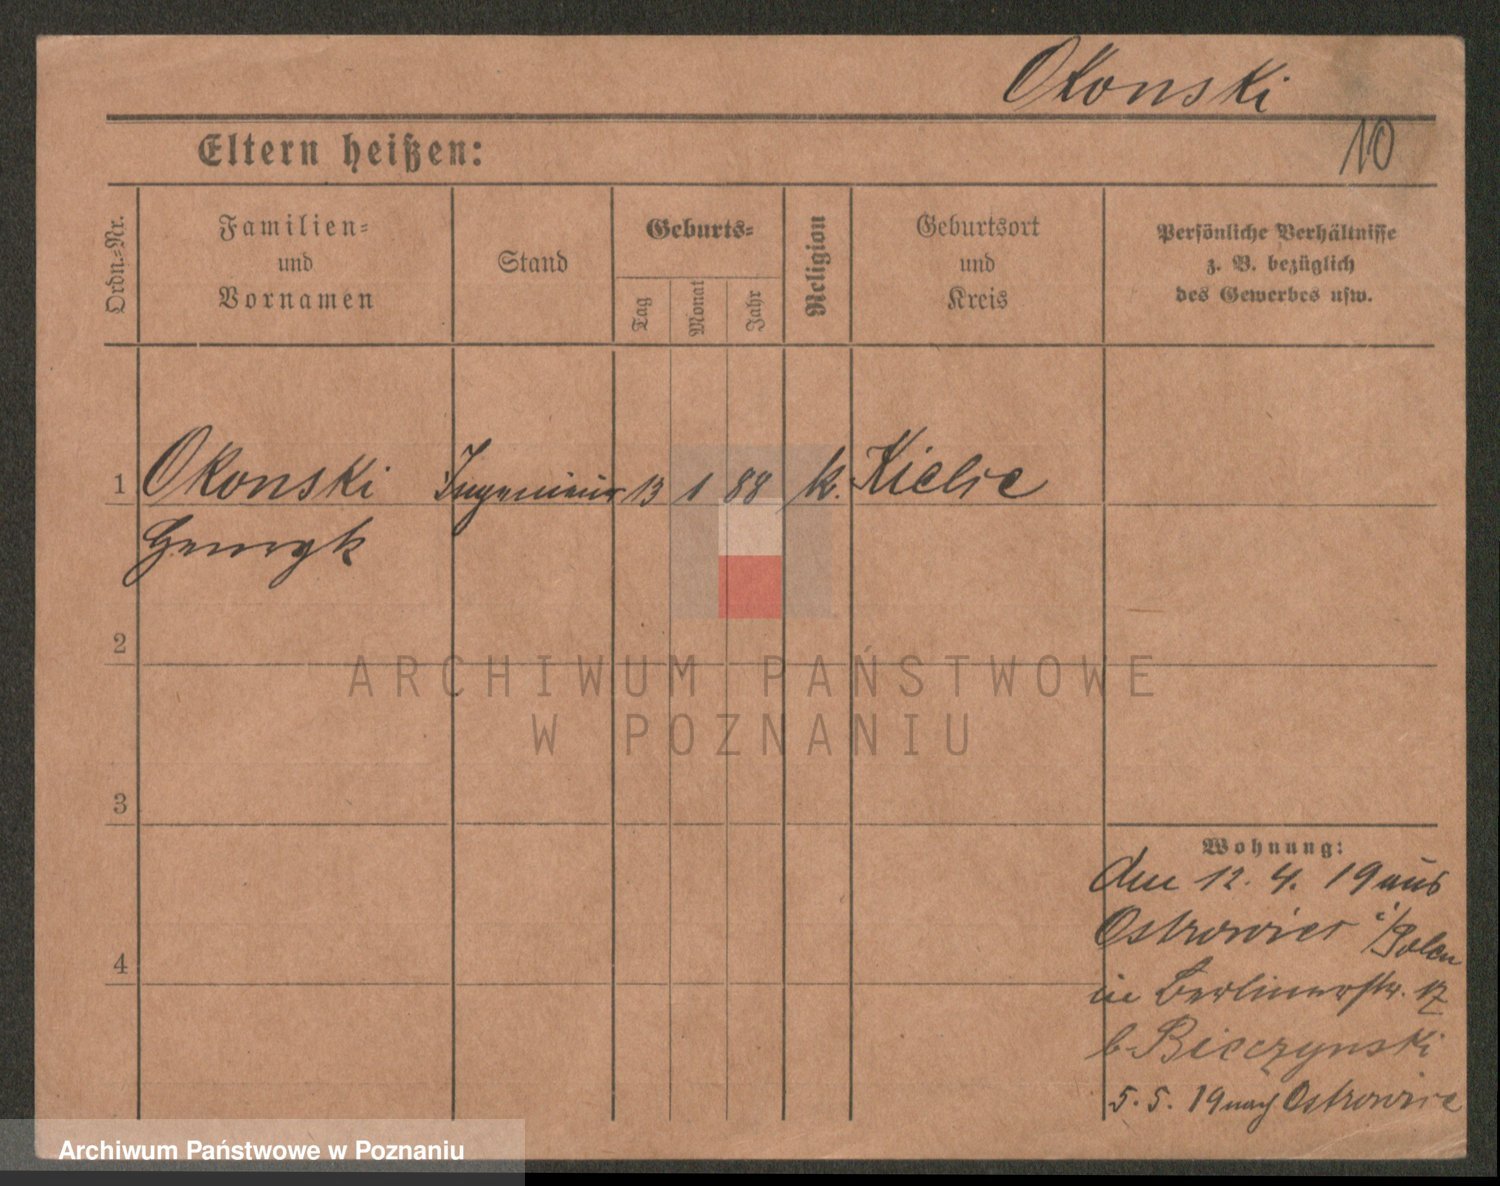 Okonski
10
Eltern heißen:
Ordn.-Nr.
Familien-
und
Vornamen
Stand
Geburts-
Tag
Monat
Jahr
Religion
Geburtsort
und
Kreis
Persönliche Verhältnisse
z. B. bezüglich
des Gewerbes usw.
1 Okonski Ingenieur 13 1 88 k. Kielce
Henryk
2
3
4
ARCHIWUM PAŃSTWOWE
W POZNANIU
Wohnung:
den 12. 4. 19 aus
Ostrowiec i/Polen
in Berlinerstr. 17
b. Bieczynski
5. 5. 19 nach Ostrowiec
Archiwum Państwowe w Poznaniu